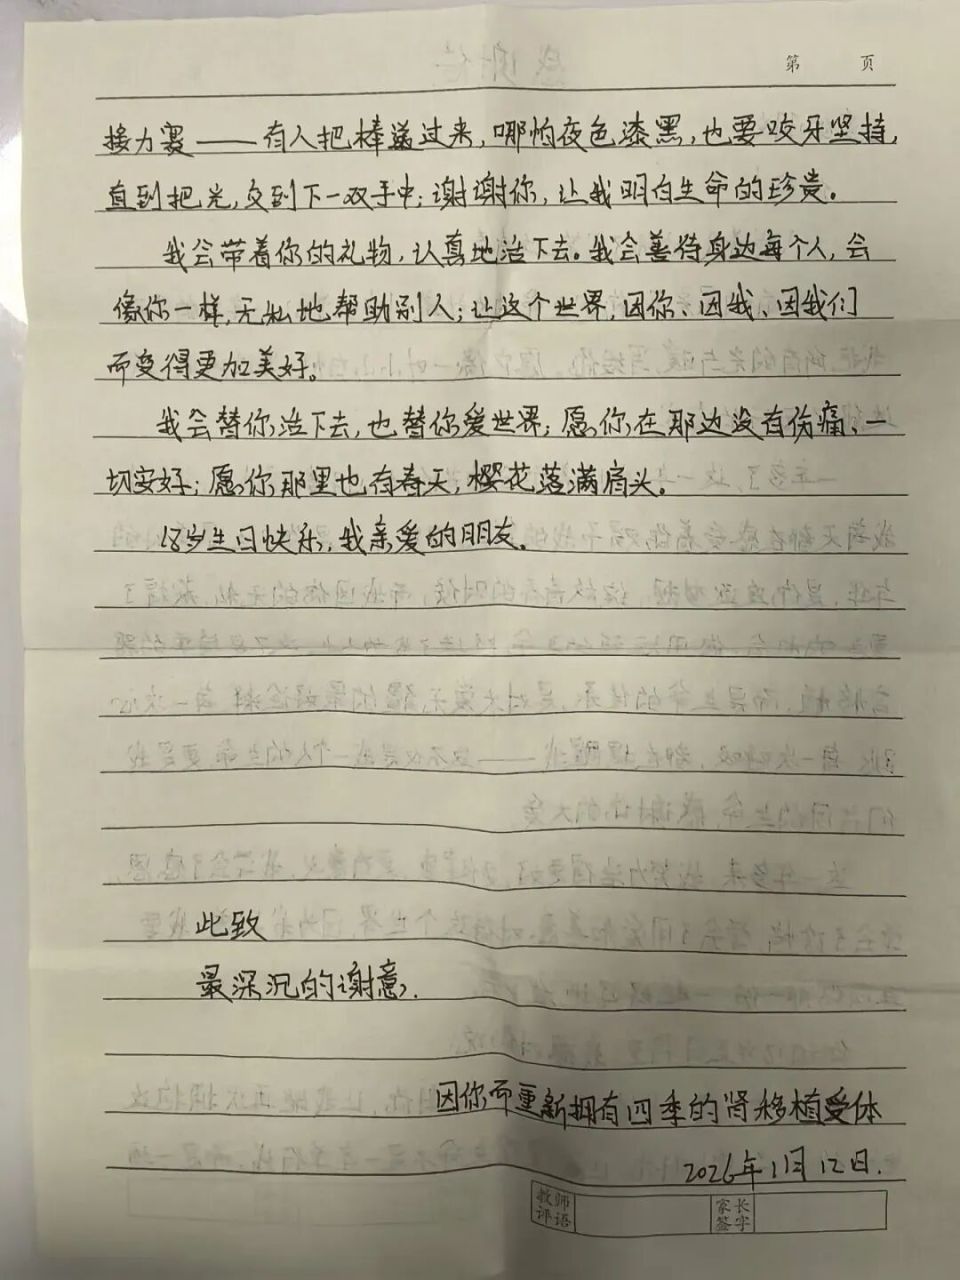 第 页
接力赛——有人把棒递过来,哪怕夜色漆黑,也要咬牙坚持,
直到把光,交到下一双手中;谢谢你,让我明白生命的珍贵。
我会带着你的礼物,认真地活下去。我会善待身边每个人,会
像你一样,无私地帮助别人;让这个世界,因你、因我、因我们
而变得更加美好。
我会替你活下去,也替你爱世界;愿你在那边没有伤痛、一
切安好;愿你那里也有春天,樱花落满肩头。
18岁生日快乐,我亲爱的朋友。
此致
最深沉的谢意.
因你而重新拥有四季的肾移植受体
2026年1月12日.
教师评语 家长签字